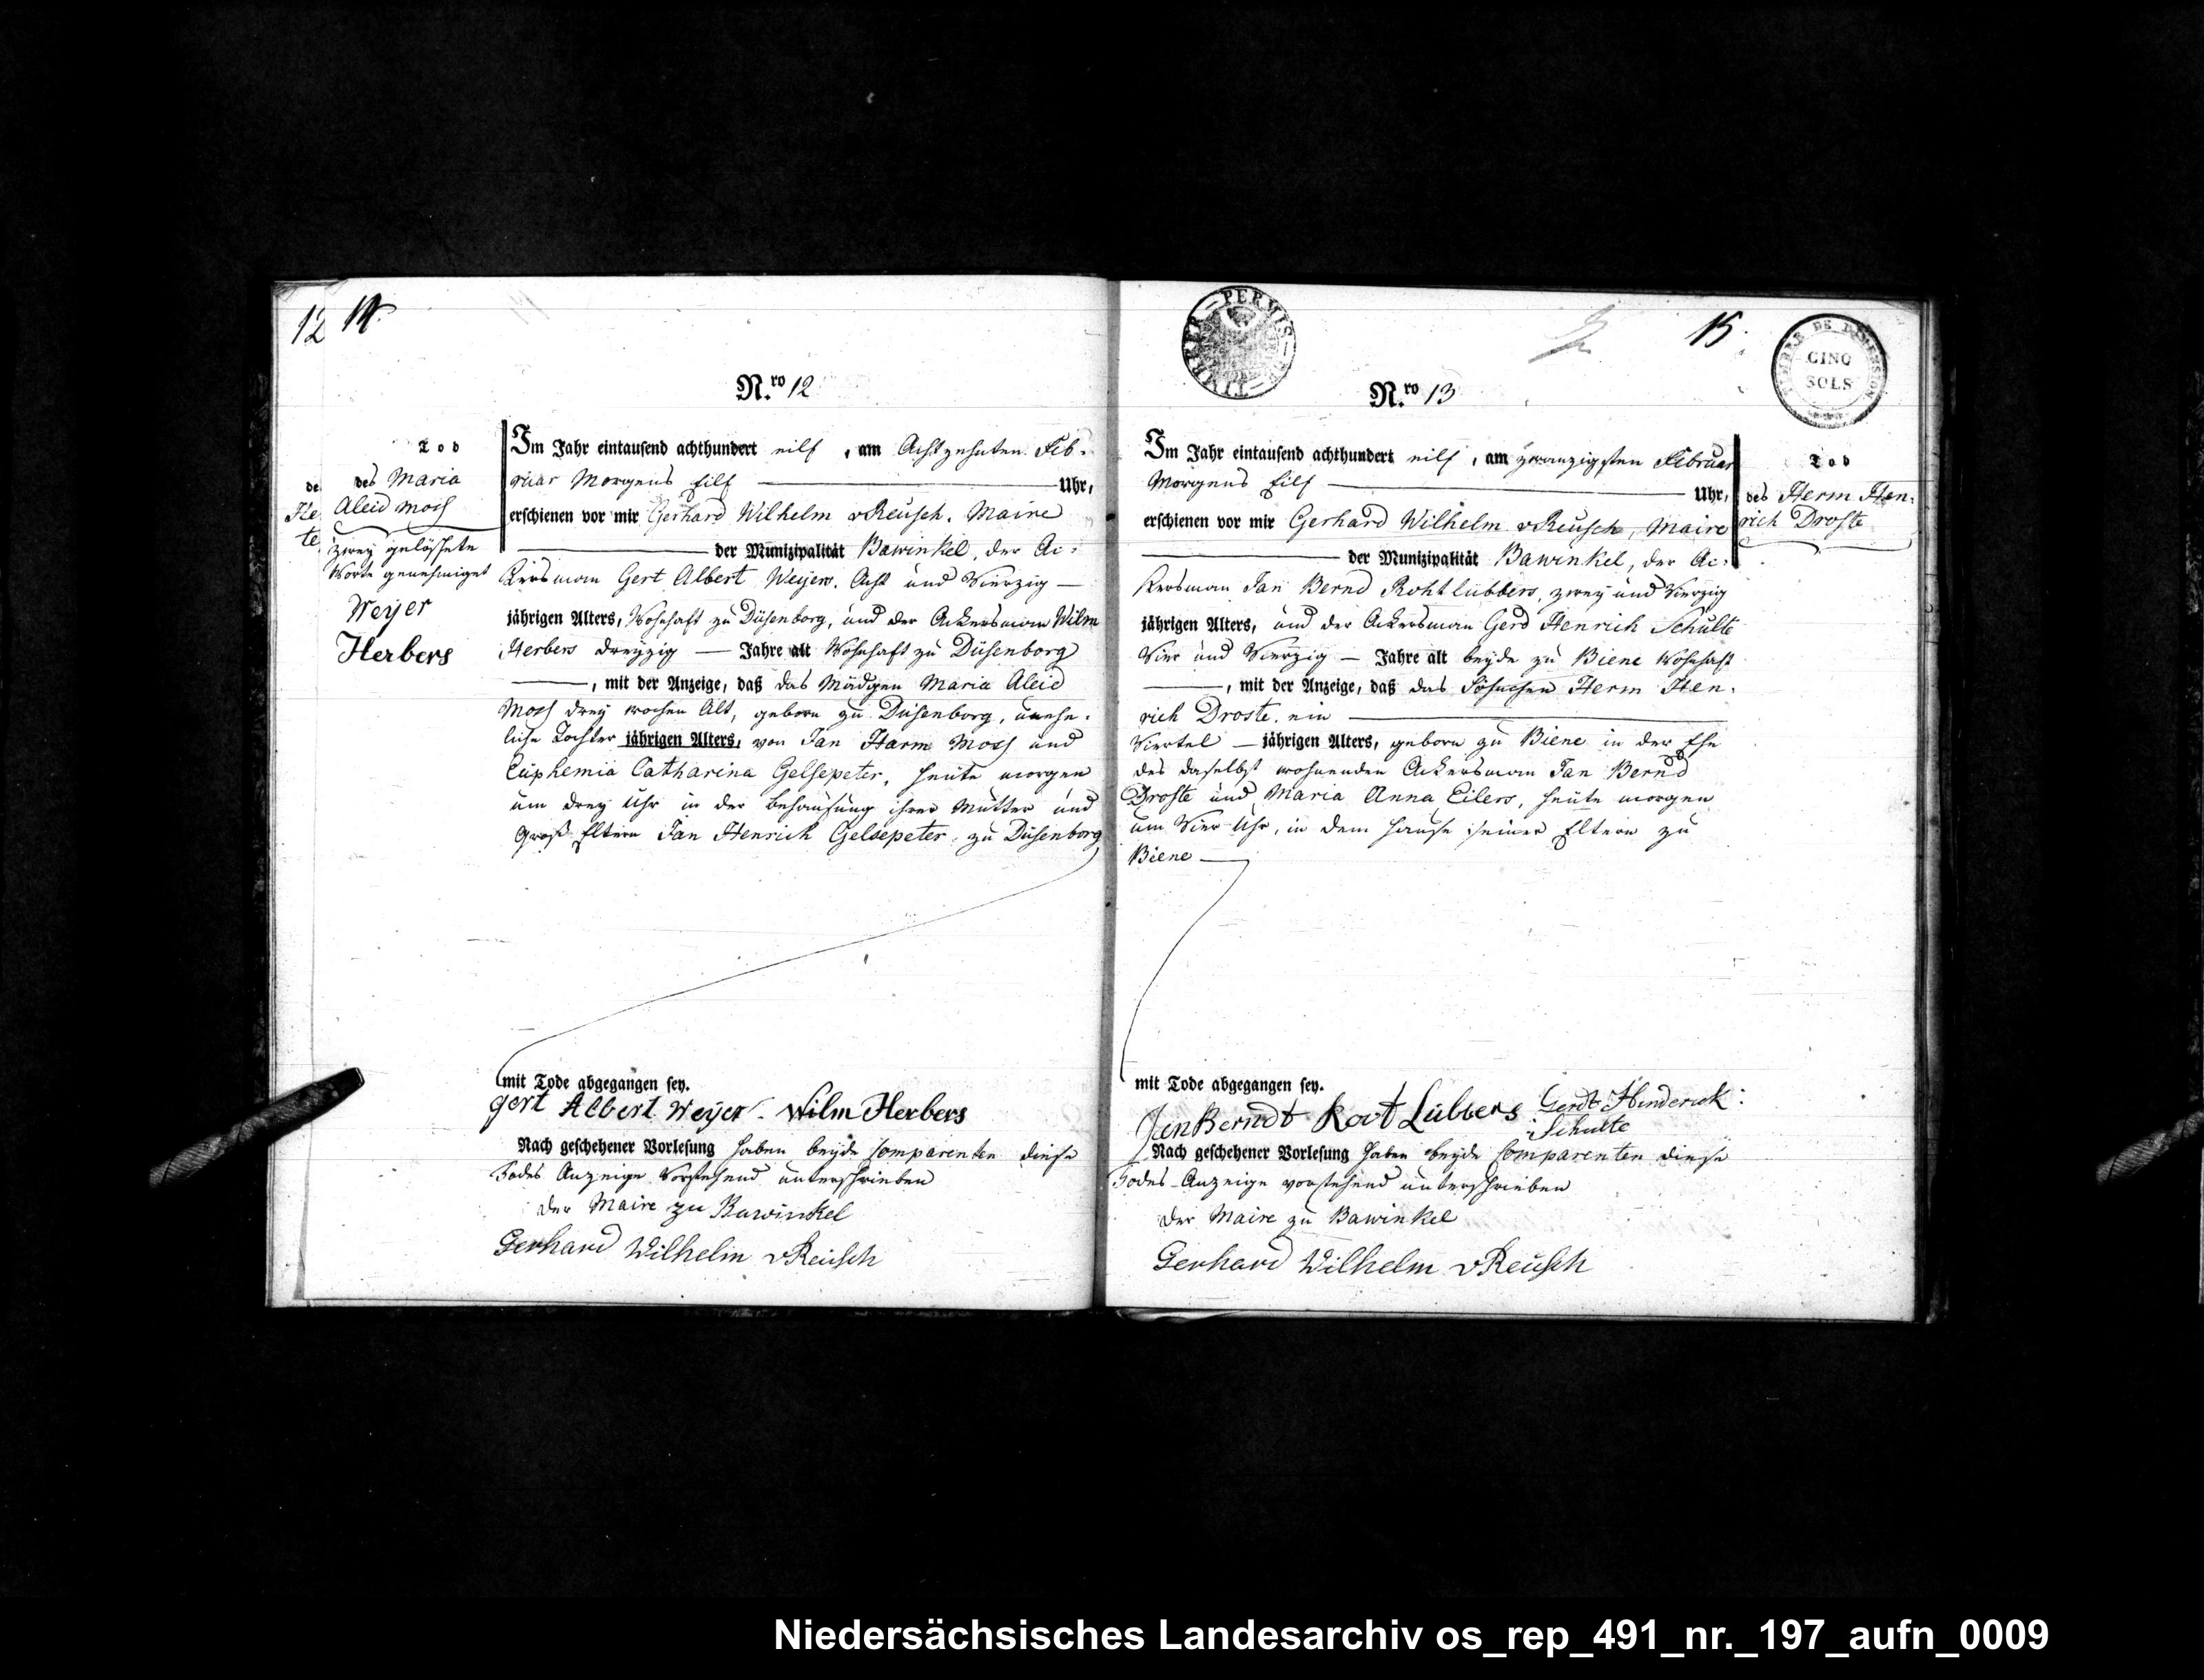 12 14.
N.ro 12
Tod
des Maria
Aleid Mosch
zwey gelöschete
Worte genehmiget
Weyer
Herbers
Im Jahr eintausend achthundert eilf, am Achtzehnten Feb-
ruar Morgens Eilf Uhr,
erschienen vor mir Gerhard Wilhelm vReusch. Maire
der Munizipalität Bawinkel, der Ac-
kersman Gert Albert Weyers. Acht und Vierzig
jährigen Alters, Wohnhaft zu Düsenborg, und der Ackersman Wilm
Herbers dreyzig Jahre alt Wohnhaft zu Düsenborg
, mit der Anzeige, daß das Mädgen Maria Aleid
Mosch drey wochen Alt, geborn zu Düsenborg, unehe-
liche Tochter jährigen Alters, von Jan Harm Mosch und
Euphemia Catharina Gelsepeter, heute morgen
um drey Uhr in der Behausung ihrer Mutter und
Groß Eltern Jan Henrich Gelsepeter zu Düsenborg
mit Tode abgegangen sey.
gert Albert Weyer. Wilm Herbers
Nach geschehener Vorlesung haben beyde Comparenten diese
Todes Anzeige Vorstehend unterschrieben
Der Maire zu Bawinkel
Gerhard Wilhelm vReusch
PERMIS
TIMBRER
15.
TIMBRE DE DIMENSION
CINQ
SOLS
N.ro 13
Im Jahr eintausend achthundert eilf, am zwanzigsten Februar
Morgens Eilf Uhr,
erschienen vor mir Gerhard Wilhelm vReusch, Maire
der Munizipalität Bawinkel, der Ac-
kersman Jan Bernd Rohtlubbers, zwey und Vierzig
jährigen Alters, und der Ackersman Gerd Henrich Schulte
Vier und Vierzig Jahre alt beyde zu Biene Wohnhaft
, mit der Anzeige, daß das Söhnchen Herm Hen-
rich Droste. ein
Viertel jährigen Alters, geborn zu Biene in der Ehe
des daselbst wohnenden Ackersman Jan Bernd
Droste und Maria Anna Eilers, heute morgen
um Vier Uhr, in dem Hause seiner Eltern zu
Biene
mit Tode abgegangen sey.
Jan Berndt Root Lübbers Gerdt Hinderick
Schulte
Nach geschehener Vorlesung haben beyde Comparenten diese
Todes-Anzeige vorstehend unterschrieben
Der Maire zu Bawinkel
Gerhard Wilhelm vReusch
Tod
des Herm Hen-
rich Droste
Niedersächsisches Landesarchiv os_rep_491_nr._197_aufn_0009